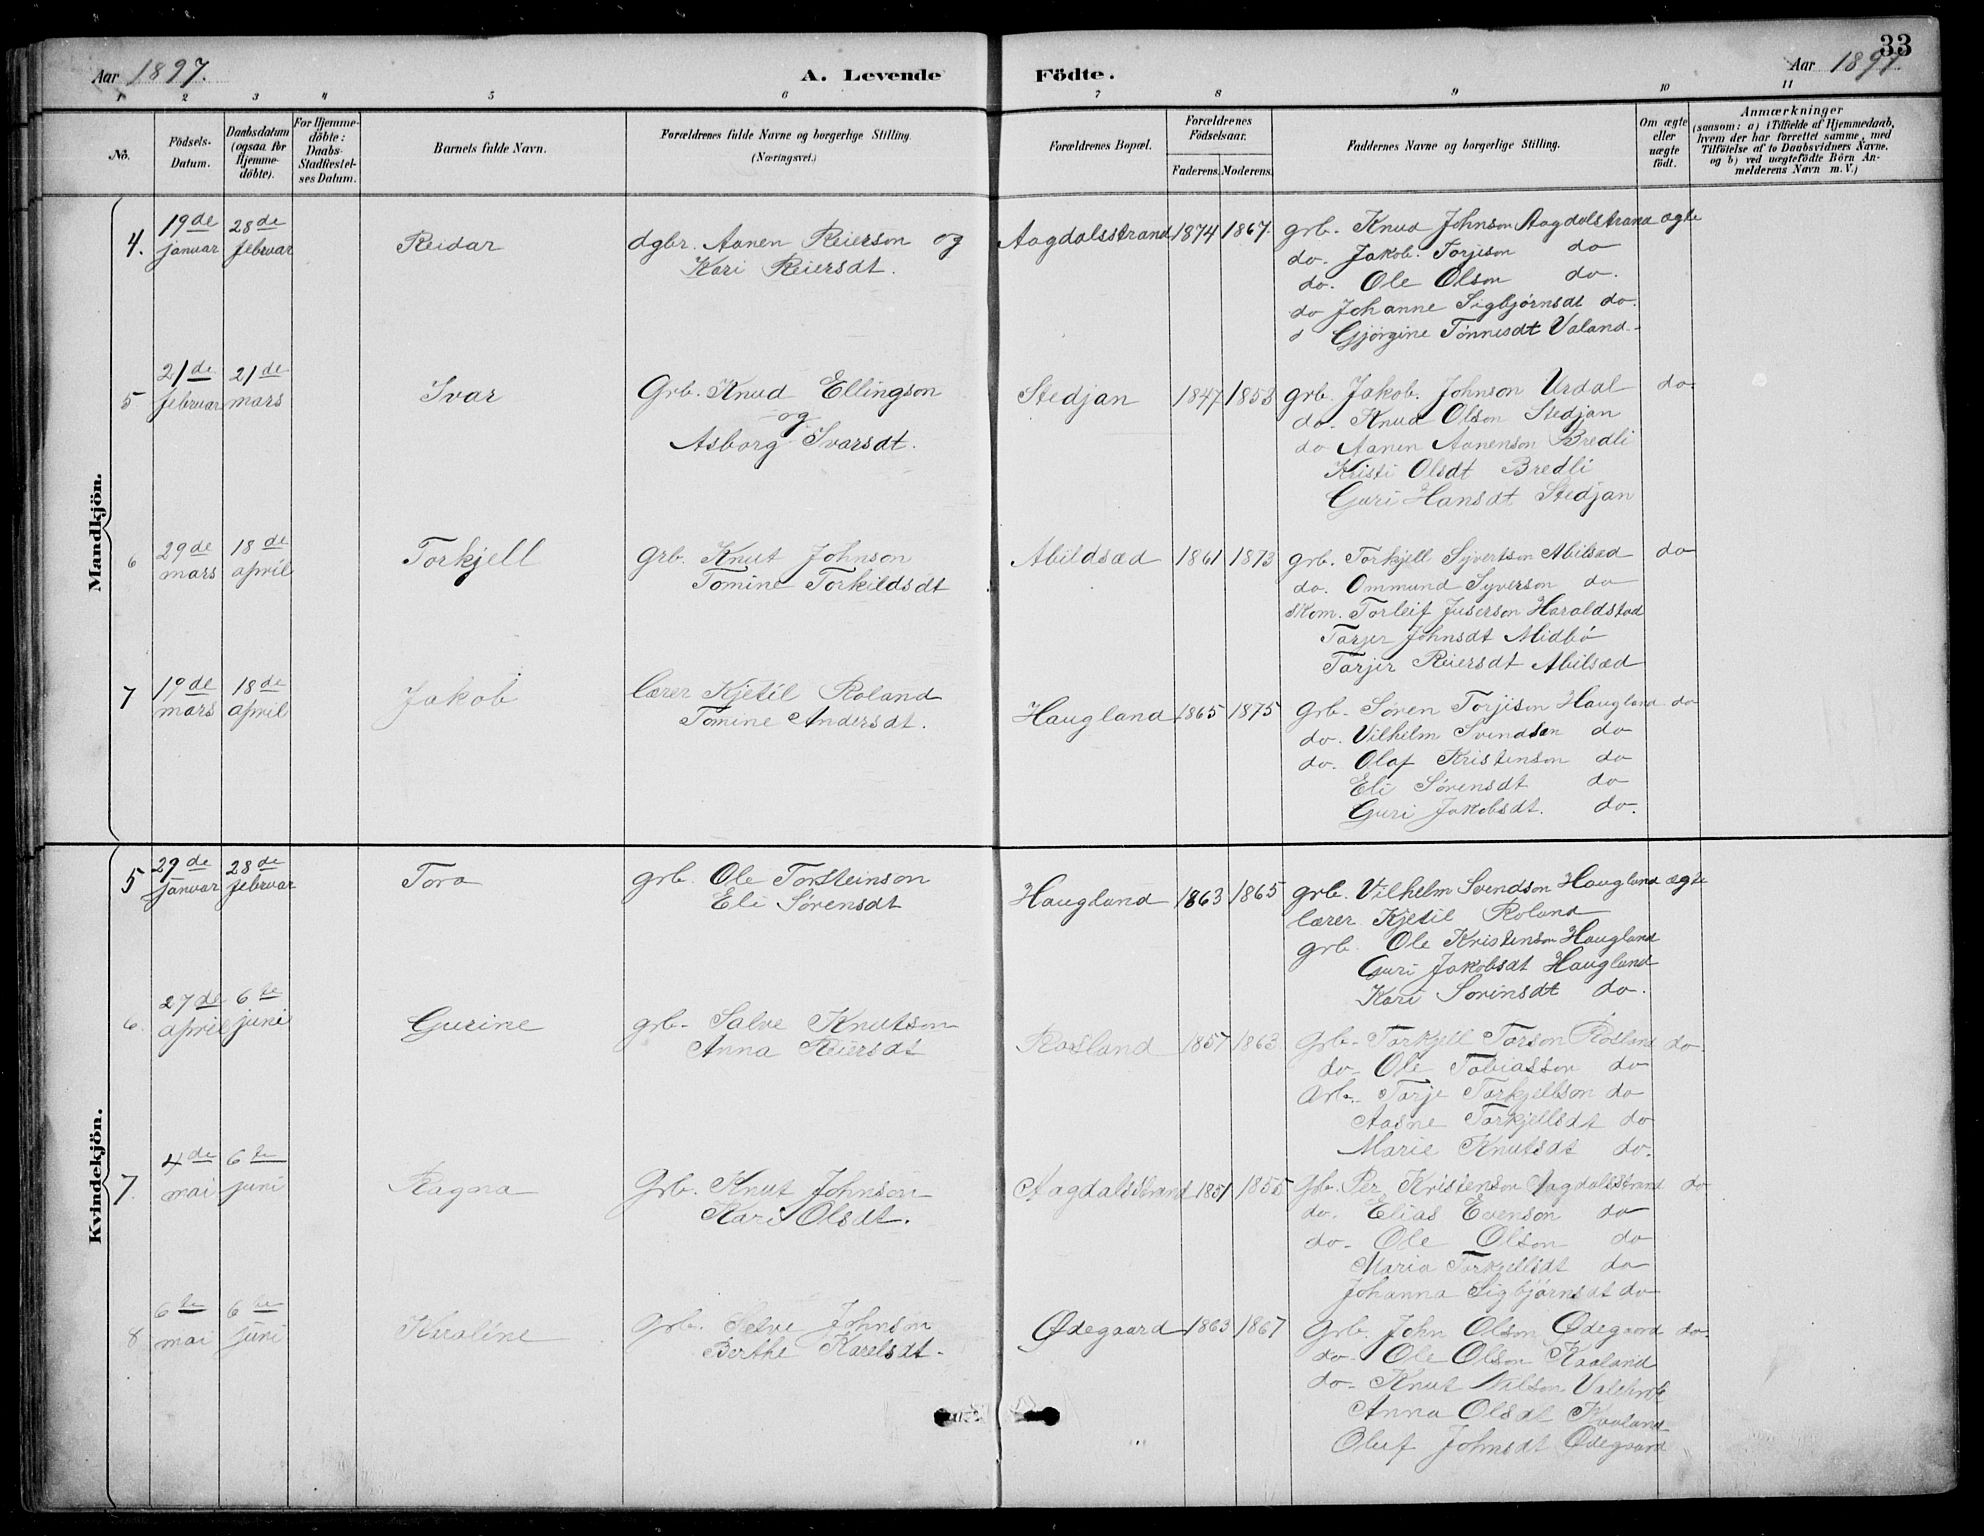 33
Aar 1897. A. Levende Födte. Aar 1897
1 2 3 4 5 6 7 8 9 10 11
No. Födsels-Datum. Daabsdatum (ogsaa for Hjemmedöbte). For Hjemmedöbte: Daabs-Stadfæstelses Datum. Barnets fulde Navn. Forældrenes fulde Navne og borgerlige Stilling. (Næringsvei.) Forældrenes Bopæl. Forældrenes Födselsaar. Faderens. Moderens. Faddernes Navne og borgerlige Stilling. Om ægte eller uægte født. Anmærkninger (saasom: a) i Tilfælde af Hjemmedaab, hvem der har forrettet samme, med Tilföielse af to Daabsvidners Navne. og b) ved uægtefödte Börn Anmelderens Navn m. V.)
Mandkjön.
4. 19de januar 28de februar Reidar dgbr. Aanen Reierson og Aagdalsstrand 1874 1867. grb. Knud Johnson Aagdalstrand ægte
Kari Reiersdt. do. Jakob. Torjison do
do. Ole Olson do.
do Johanne Sigbjørnsdt do.
Gjørgine Tønnesdt Valand
5 21de februar 21de mars Ivar Grb. Knud Ellingson Stedjan 1847 1853 grb. Jakob. Johnson Urdal do
og do. Knud Olson Stedjan
Asborg Ivarsdt. do Aanen Aanenson Bredli
Kristi Olsdt Bredli
Guri Hansdt Stedjan
6 29de mars 18de april Torkjell grb. Knut Johnson Abildsæd 1861 1873 grb. Torkjell Syvertson Abilsæd do
Tomine Torkildsdt do. Ommund Syverson do
Torleif Juserson Haraldstad
Tarjer Johnsdt Midbø
Tarjer Reiersdt Abilsæd
7 19de mars 18de april Jakob lærer Kjetil Roland Haugland 1865 1875 grb. Søren Torjison Haugland do
Tomine Andersdt. do. Vilhelm Svendsen do
do. Olaf Kristenson do
Eli Sørensdt do
Guri Jakobsdt. do.
Kvindekjön.
5 29de januar 28de februar Tora grb. Ole Torsteinson Haugland 1863 1865 grb. Vilhelm Svendson Haugland ægte
Eli Sørensdt lærer Kjetil Roland
grb. Ole Kristenson Haugland
Guri Jakobsdt Haugland
Kari Sorinsdt do.
6. 27de april 6te juni Gurine grb. Salve Knutson Rosland 1857 1863 grb. Torkjell Torson Rosland do.
Anna Reiersdt do. Ole Tobiasson do
Arb. Torje Torkjellson do
Aasne Torkjellsdt do
Marie Knutsdt do.
7. 4de mai 6te juni Ragna Grb. Knut Johnson Aagdalsstrand 1851 1855 Grb. Per Kristenson Aagdalsstrand do
Kari Olsdt. do. Elias Evenson do
do. Ole Olson do
Maria Torkjellsdt do
Johanna Sigbjørnsdt do
8 6te mai 6te juni Karaline Grb. Selve Johnson Ødegaard 1863 1867 Grb. John Olson Ødegaard do.
Berthe Karelsdt. do. Ole Olson Kaaland
do. Knut Nilson
Anna Olsdt Kvoland
Oluf Johnsdt Ødegaard